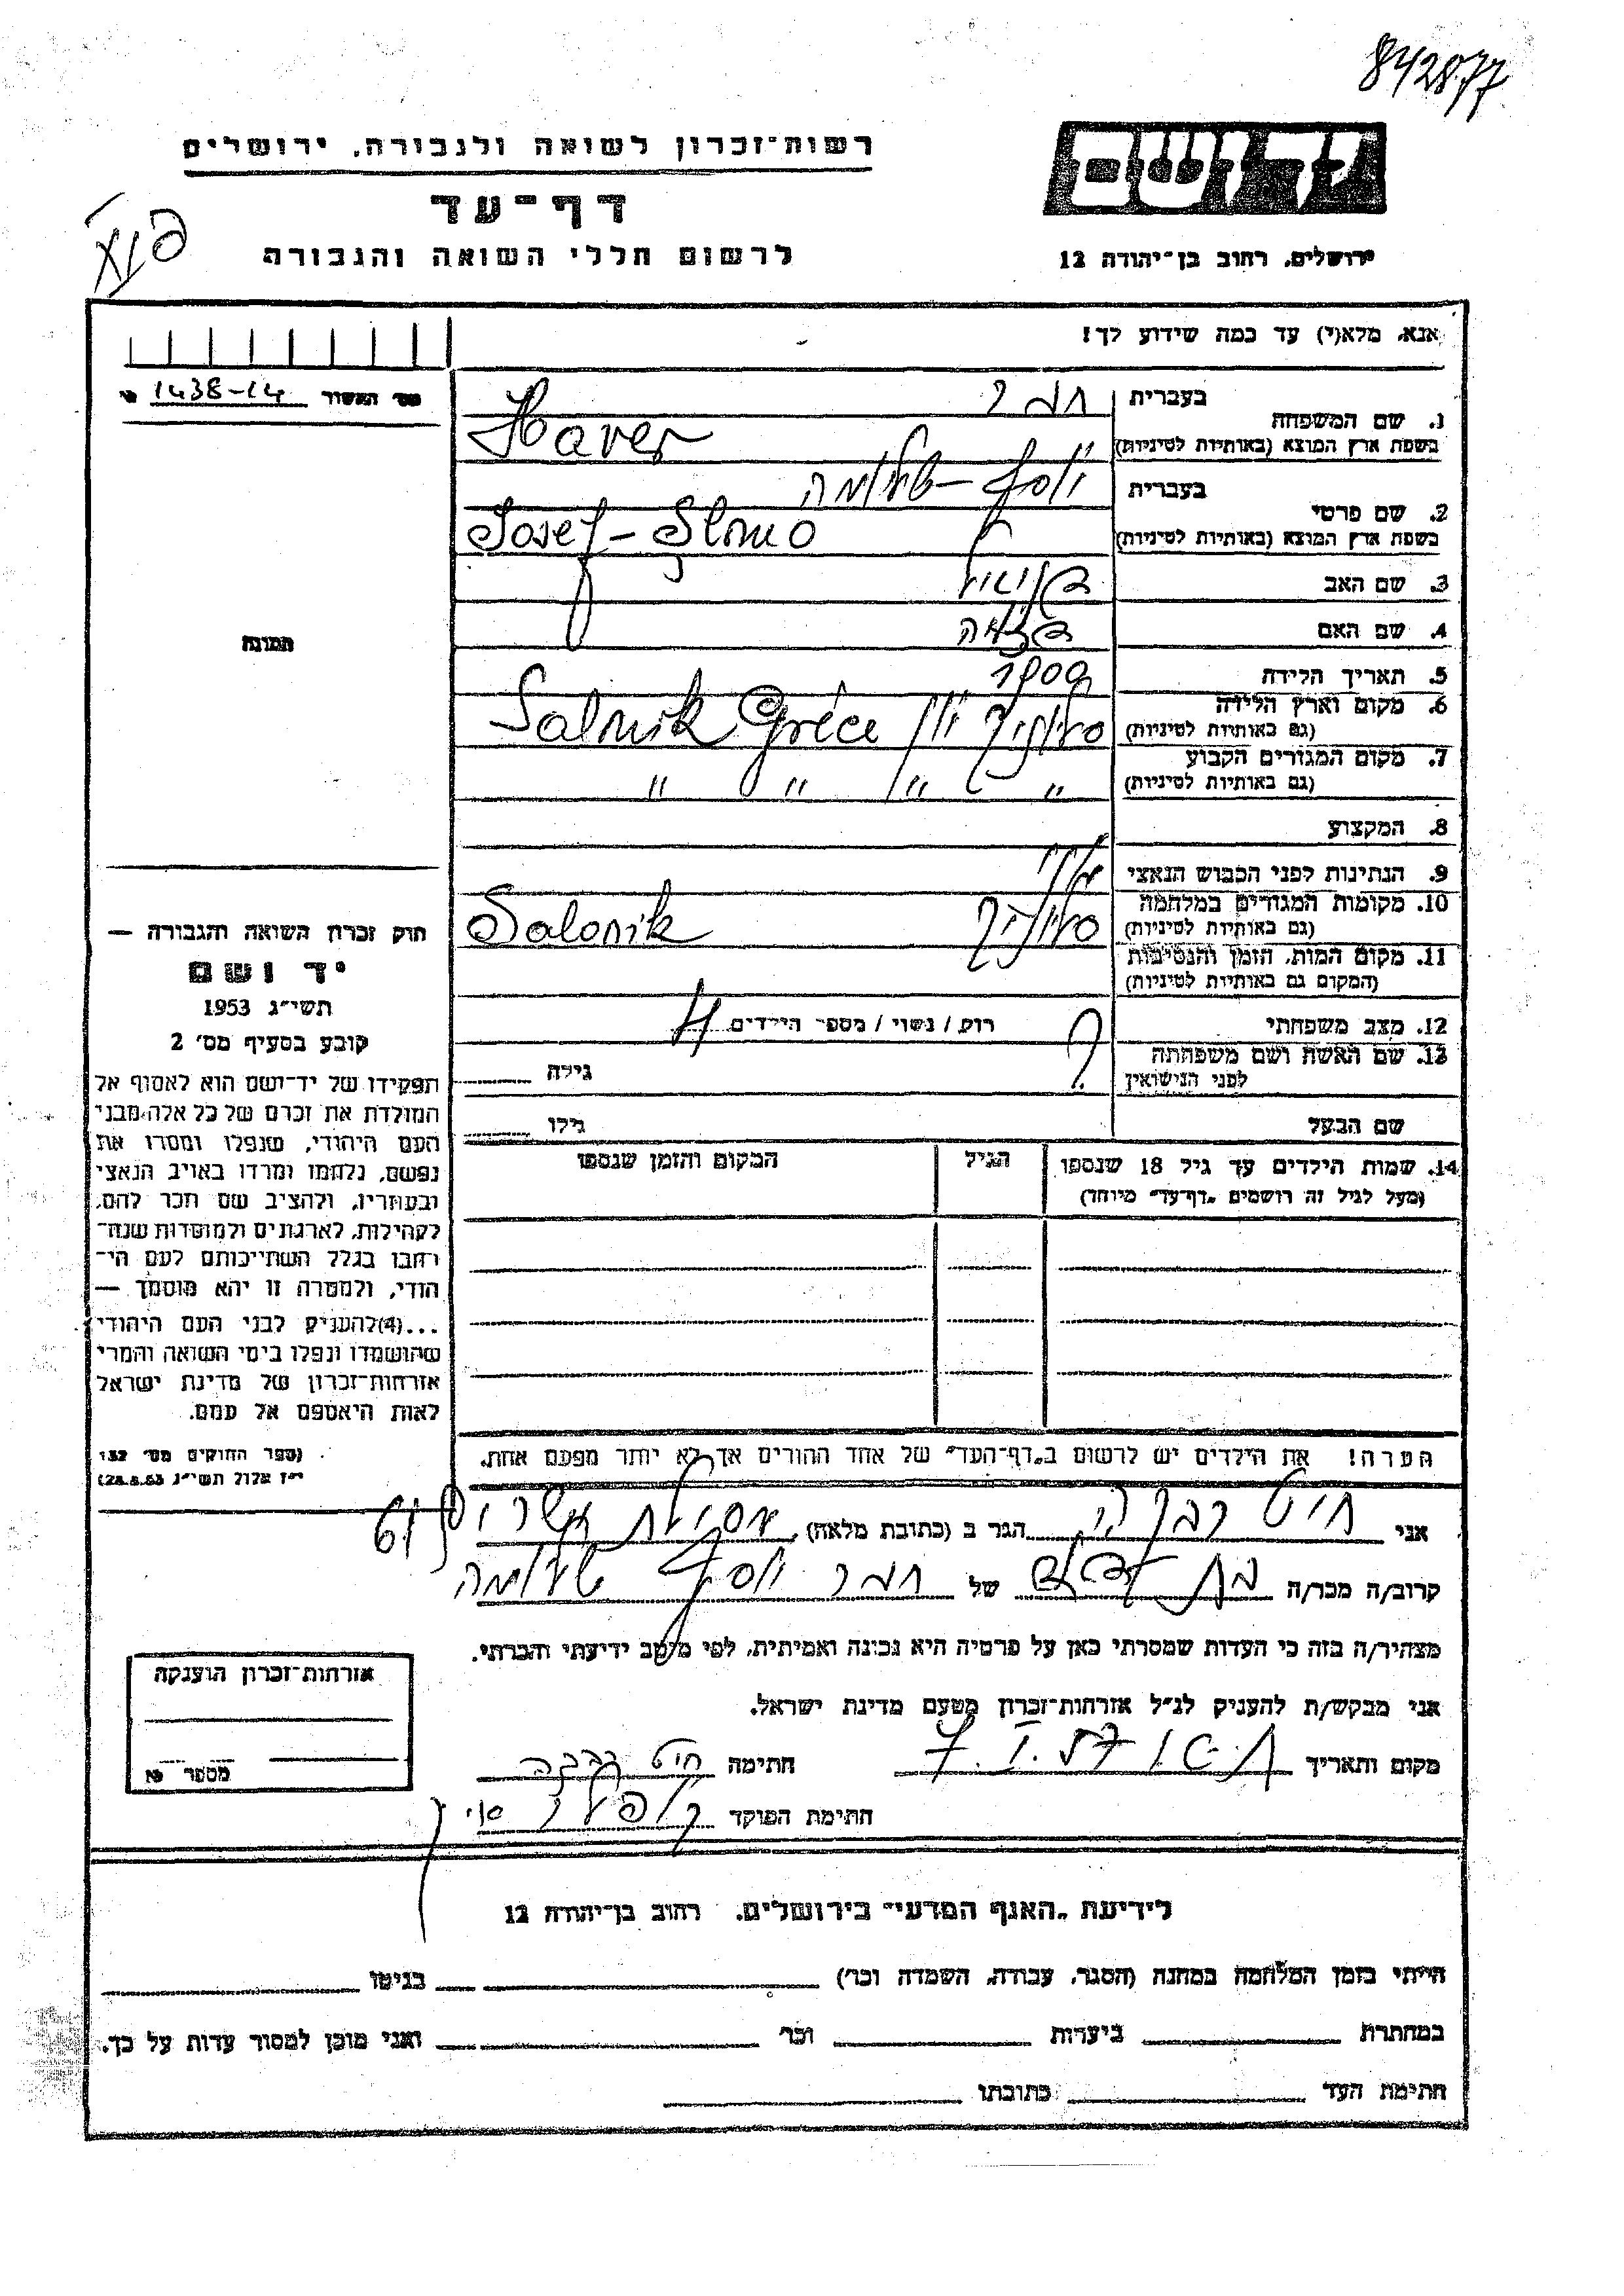 842877
רשות־זכרון לשואה ולגבורה, ירושלים
דף־עד
לרשום חללי השואה והגבורה
ידושם
ירושלים, רחוב בן־יהודה 12
אנא, מלא(י) עד כמה שידוע לך!
מס׳ האשור 1438-14
1. שם המשפחה בעברית חבר
בשפת ארץ המוצא (באותיות לטיניות) Haver
2. שם פרטי בעברית יוסף-שלמה
בשפת ארץ המוצא (באותיות לטיניות) Josef-Slomo
3. שם האב
4. שם האם
5. תאריך הלידה 1900
6. מקום וארץ הלידה סלוניק יון Salonik Gréce
(גם באותיות לטיניות)
7. מקום המגורים הקבוע " " " "
(גם באותיות לטיניות)
8. המקצוע
9. הנתינות לפני הכבוש הנאצי
10. מקומות המגורים במלחמה סלוניק Salonik
(גם באותיות לטיניות)
11. מקום המות, הזמן והנסיבות
(המקום גם באותיות לטיניות)
12. מצב משפחתי רוק / נשוי / מספר הילדים 4
13. שם האשה ושם משפחתה ? גילה
לפני הנישואין
שם הבעל גילו
14. שמות הילדים עד גיל 18 שנספו הגיל המקום והזמן שנספו
(מעל לגיל זה רושמים „דף־עד״ מיוחד)
הערה! את הילדים יש לרשום ב„דף־העד״ של אחד ההורים אך לא יותר מפעם אחת.
תמונה
חוק זכרון השואה והגבורה —
יד ושם
תשי״ג 1953
קובע בסעיף מס׳ 2
תפקידו של יד־ושם הוא לאסוף אל
המולדת את זכרם של כל אלה מבני
העם היהודי, שנפלו ומסרו את
נפשם, נלחמו ומרדו באויב הנאצי
ובעוזריו, ולהציב שם וזכר להם,
לקהילות, לארגונים ולמוסדות שנח־
רבו בגלל השתייכותם לעם הי־
הודי, ולמטרה זו יהא מוסמך —
...(4)להעניק לבני העם היהודי
שהושמדו ונפלו בימי השואה והמרי
אזרחות־זכרון של מדינת ישראל
לאות היאספם אל עמם.
(ספר החוקים מס׳ 132
י״ז אלול תשי״ג 28.8.53)
אני חיט רבקה הגר ב (כתובת מלאה) 61
קרוב/ה מכר/ה של חבר יוסף שלמה
מצהיר/ה בזה כי העדות שמסרתי כאן על פרטיה היא נכונה ואמיתית, לפי מיטב ידיעתי והכרתי.
אני מבקש/ת להעניק לנ״ל אזרחות־זכרון מטעם מדינת ישראל.
מקום ותאריך חתימה חיט רבקה
חתימת הפוקד
אזרחות־זכרון הוענקה
מספר
לידיעת „האגף המדעי״ בירושלים, רחוב בן־יהודה 12
הייתי בזמן המלחמה במחנה (הסגר, עבודה, השמדה וכו׳) בגיטו
במחתרת ביערות וכו׳ ואני מוכן למסור עדות על כך.
חתימת העד כתובתו